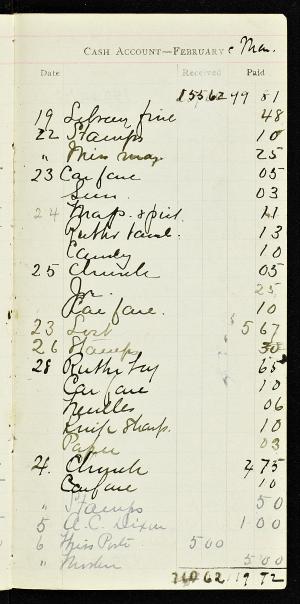 CASH ACCOUNT—FEBRUARY & Mar.
Date Received Paid
155 62 49 81
19 Library fine 48
22 Stamps 10
" Miss May 25
23 Car fare 05
Gum 03
24 11
Ruth's 13
Candy 10
25 Church 05
Jr. 25
Car fare. 10
23 Lost 5 67
26 Stamps 30
28 Ruth's 65
Car fare 10
Needles 06
Knife sharp. 10
Paper 03
4. Church 75
Carfare 10
" Stamps 50
5 A. C. Dixon 1 00
6 Miss 5 00
" 5 00
62